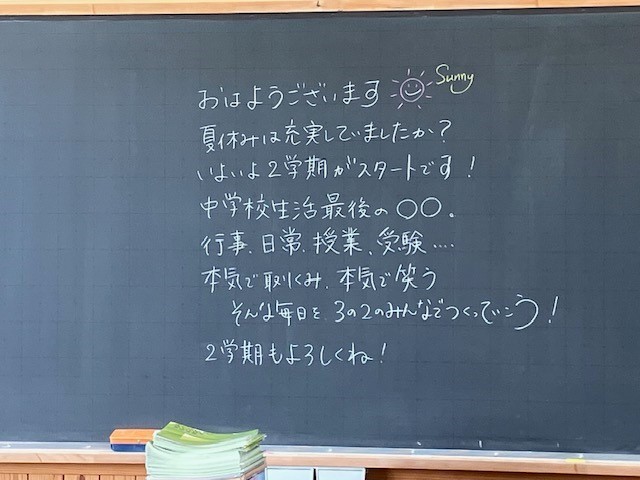 おはようございます Sunny
夏休みは充実していましたか?
いよいよ2学期がスタートです!
中学校生活最後の〇〇。
行事、日常、授業、受験....
本気で取りくみ、本気で笑う
そんな毎日を3の2のみんなでつくっていこう!
2学期もよろしくね!